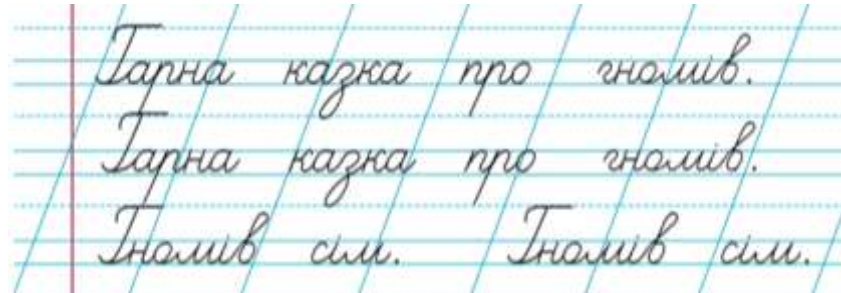 Гарна казка про гномів.
Гарна казка про гномів.
Гномів сім. Гномів сім.